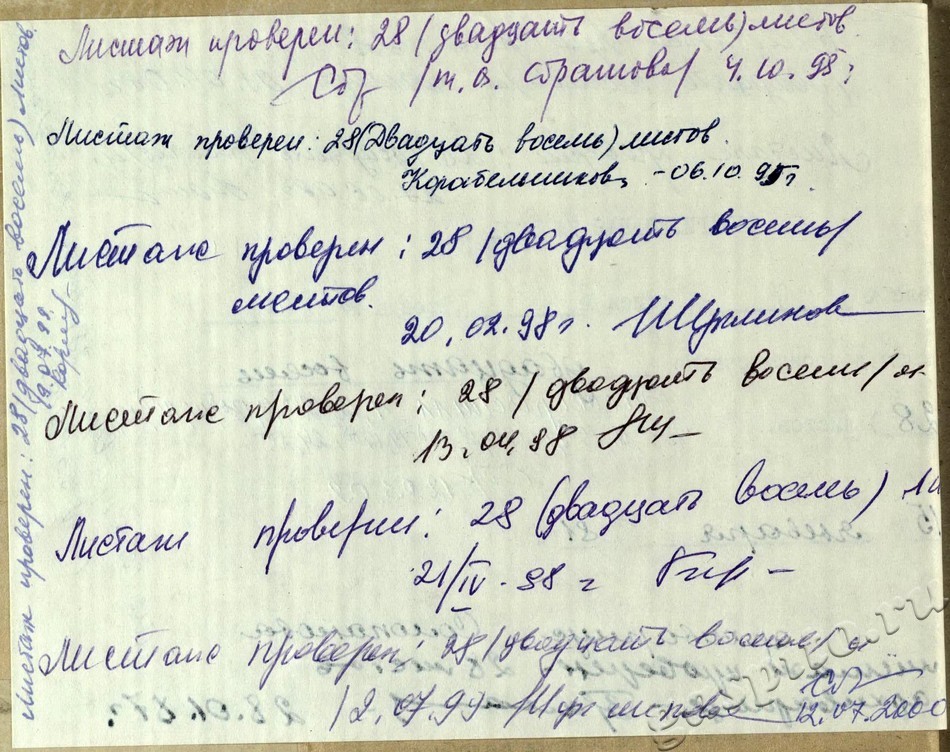 Листаж проверен: 28 (двадцать восемь) листов.
/т. В. 4.10.95г
Листаж проверен: 28 (Двадцать восемь) листов.
Корабельников -06.10.95г.
Листаж проверен: 28 /двадцать восемь/
листов.
20.02.98г.
Листаж проверен: 28 /двадцать восемь/ л.
13.04.98
Листаж проверен: 28 (двадцать восемь)
21/IV-98 г
Листаж проверен: 28 /двадцать восемь/ л
12.07.99
12.07.2000
Листаж проверен: 28 (двадцать восемь) листов.
19.07.99.